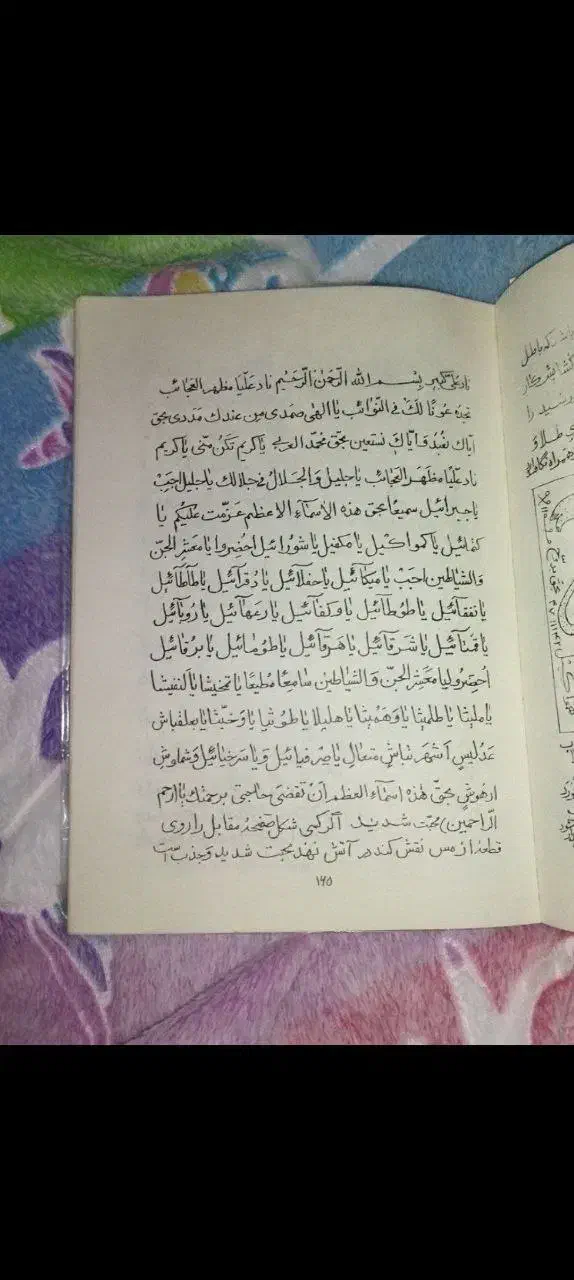 ناد علی کبیر بسم الله الرحمن الرحیم ناد علیا مظهر العجائب
تجده عونا لک فی النوائب یا الهی صمدی من عندک مددی بحق
ایاک نعبد و ایاک نستعین بحق محمد العربی یا کریم تکن منی یا کریم
ناد علیا مظهر العجائب یا جلیل و الجلال فی جلالک یا جلیل اجب
یا جبرائیل سمیعا بحق هذه الاسماء الاعظم عزمت علیکم یا
کفائیل یا کمواکیل یا مکفیل یا شورائیل احضروا یا معشر الجن
والشیاطین اجب یا میکائیل یا حفلائیل یا دقرائیل یا طاطائیل
یا نفقائیل یا طوطائیل یا وکفائیل یا رعهائیل یا رویائیل
یا قتائیل یا شرقائیل یا هرقائیل یا طومائیل یا برقائیل
احضرو لیا معشر الجن والشیاطین سامعا مطیعا یا تمخیشا یا لنفیشا
یا ملیثا یا طلمیثا یا وهمیثا یا هلیلا یا طوثیا یا وخبثا یا بعلفباش
عدلیس اشهر تباش متعال یا صرفیائیل و یا سرخیائیل و شماوش
ارهوش بحق هذه اسماء العظم ان تقضی حاجتی برحمتک یا ارحم
الراحمین) محبت شدید اگر کسی شکل صفحهٔ مقابل را روی
قطعهٔ از مس نقش کند در آتش نهد محبت شدید و جذب است
۱۶۵
باطل
رشید را
طلا و
همراه نگاه